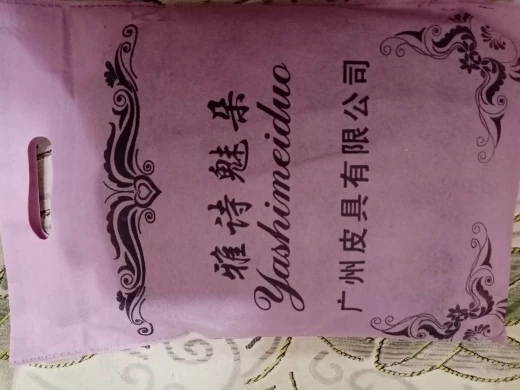 雅诗魅朵
Yashimeiduo
广州皮具有限公司